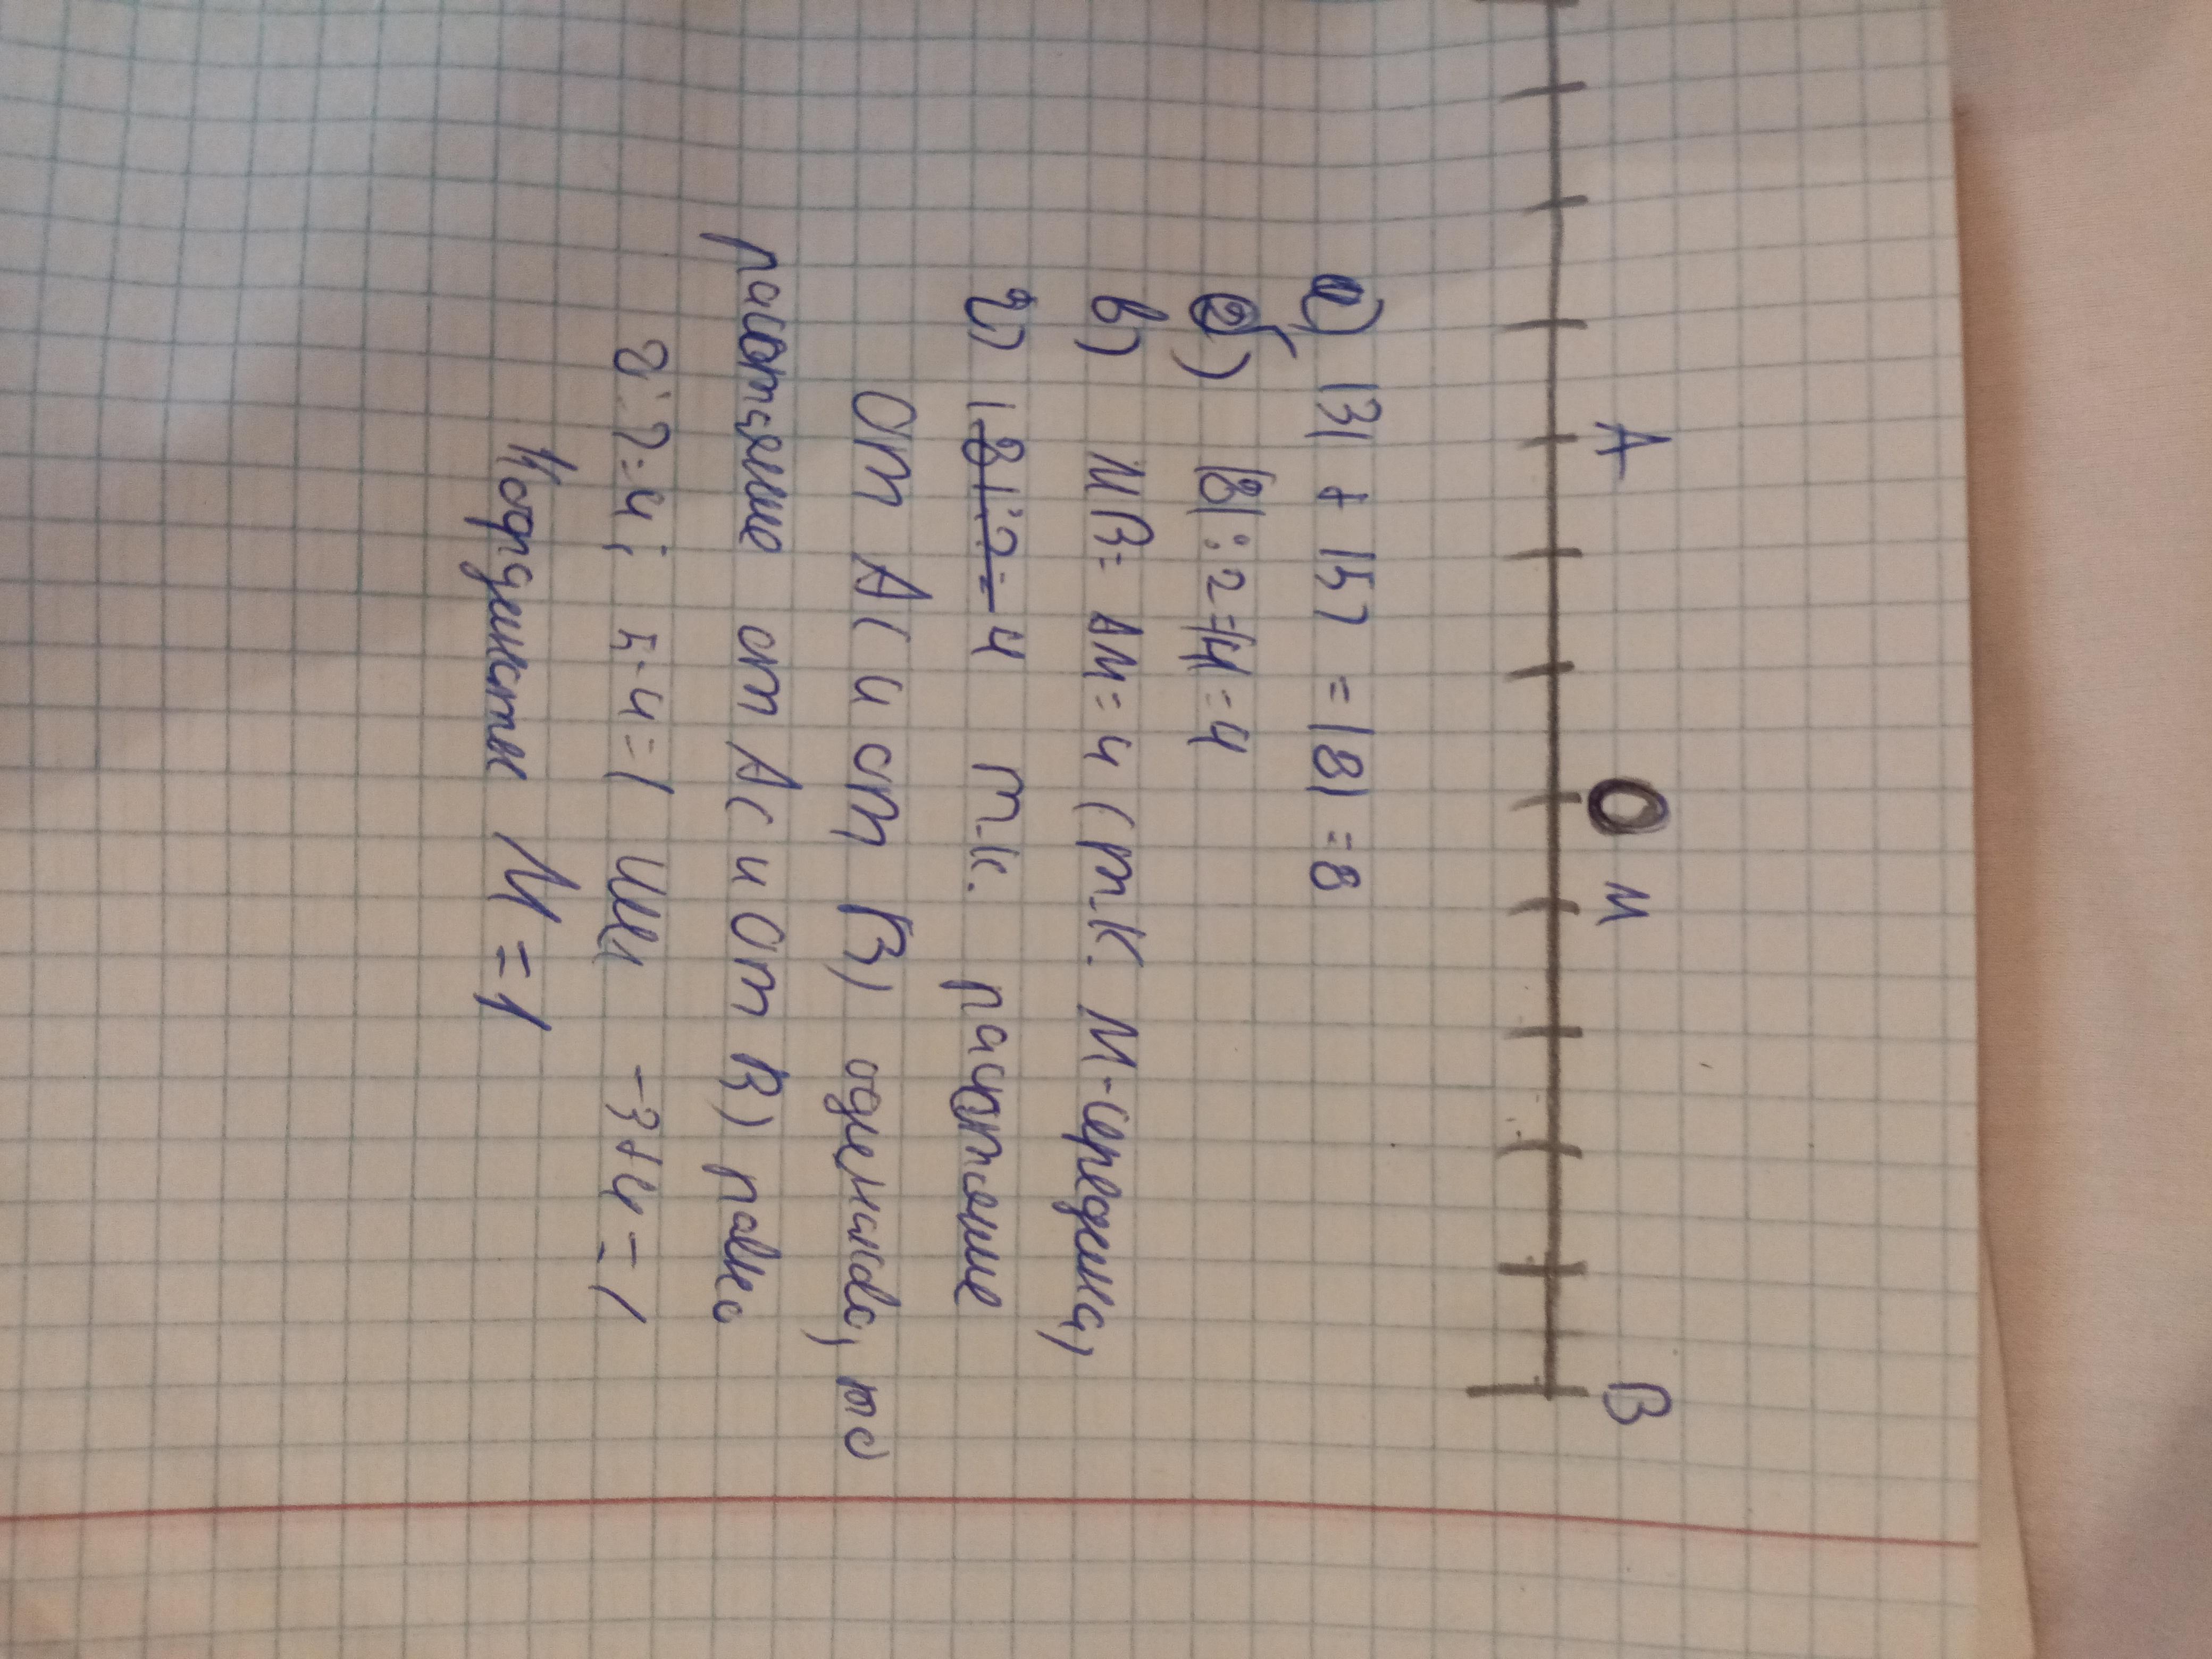 A О М B
а) |3| + |5| = |8| = 8
б) |8| : 2 = |4| = 4
в) МВ = АМ = 4 (т.к. М - середина)
г) |8| : 2 = 4 т.к. расстояние
от А (и от В) одинаково, то
расстояние от А (и от В) равно
8 : 2 = 4; 5 - 4 = 1 или -3 + 4 = 1
Координаты М = 1